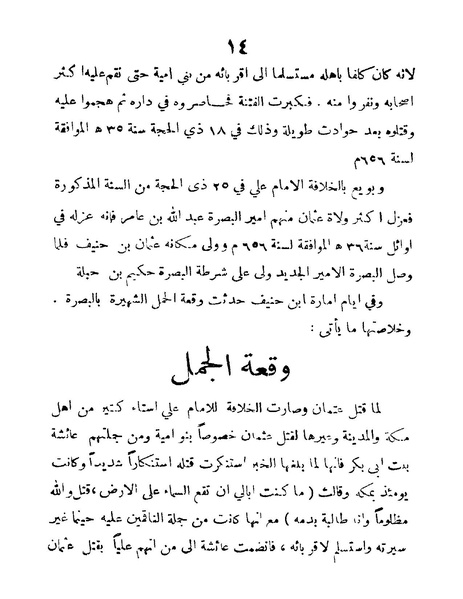 ١٤
لانه كان كلفا باهله مستسلما الى اقربائه من بني امية حتى نقم عليه اكثر
اصحابه ونفروا منه . فكبرت الفتنة فحاصروه في داره ثم هجموا عليه
وقتلوه بعد حوادث طويلة وذلك في ١٨ ذي الحجة سنة ٣٥ ه الموافقة
لسنة ٦٥٦م
و بويع بالخلافة الامام علي في ٢٥ ذى الحجة من السنة المذكورة
فعزل اكثر ولاة عثمان منهم امير البصرة عبد الله بن عامر فانه عزله في
اوائل سنة ٣٦ ه الموافقة لسنة ٦٥٦ م وولى مكانه عثمان بن حنيف فلما
وصل البصرة الامير الجديد ولى على شرطة البصرة حكيم بن حبلة
وفي ايام امارة ابن حنيف حدثت وقعة الجمل الشهيرة بالبصرة .
وخلاصتها ما يأتى :
وقعة الجمل
لما قتل عثمان وصارت الخلافة للامام علي استاء كثير من اهل
مكة والمدينة وغيرها لقتل عثمان خصوصاً بنو امية ومن جملتهم عائشة
بنت ابى بكر فانها لما بلغها الخبر استنكرت قتله استنكاراً شديداً وكانت
يومئذ بمكه وقالت ( ما كنت ابالي ان تقع السماء على الارض ،قتل والله
مظلوماً وانا طالبة بدمه ) مع انها كانت من جملة الناقمين عليه حينما غير
سيرته واستسلم لاقربائه ، فانضمت عائشة الى من اتهم علياً بقتل عثمان